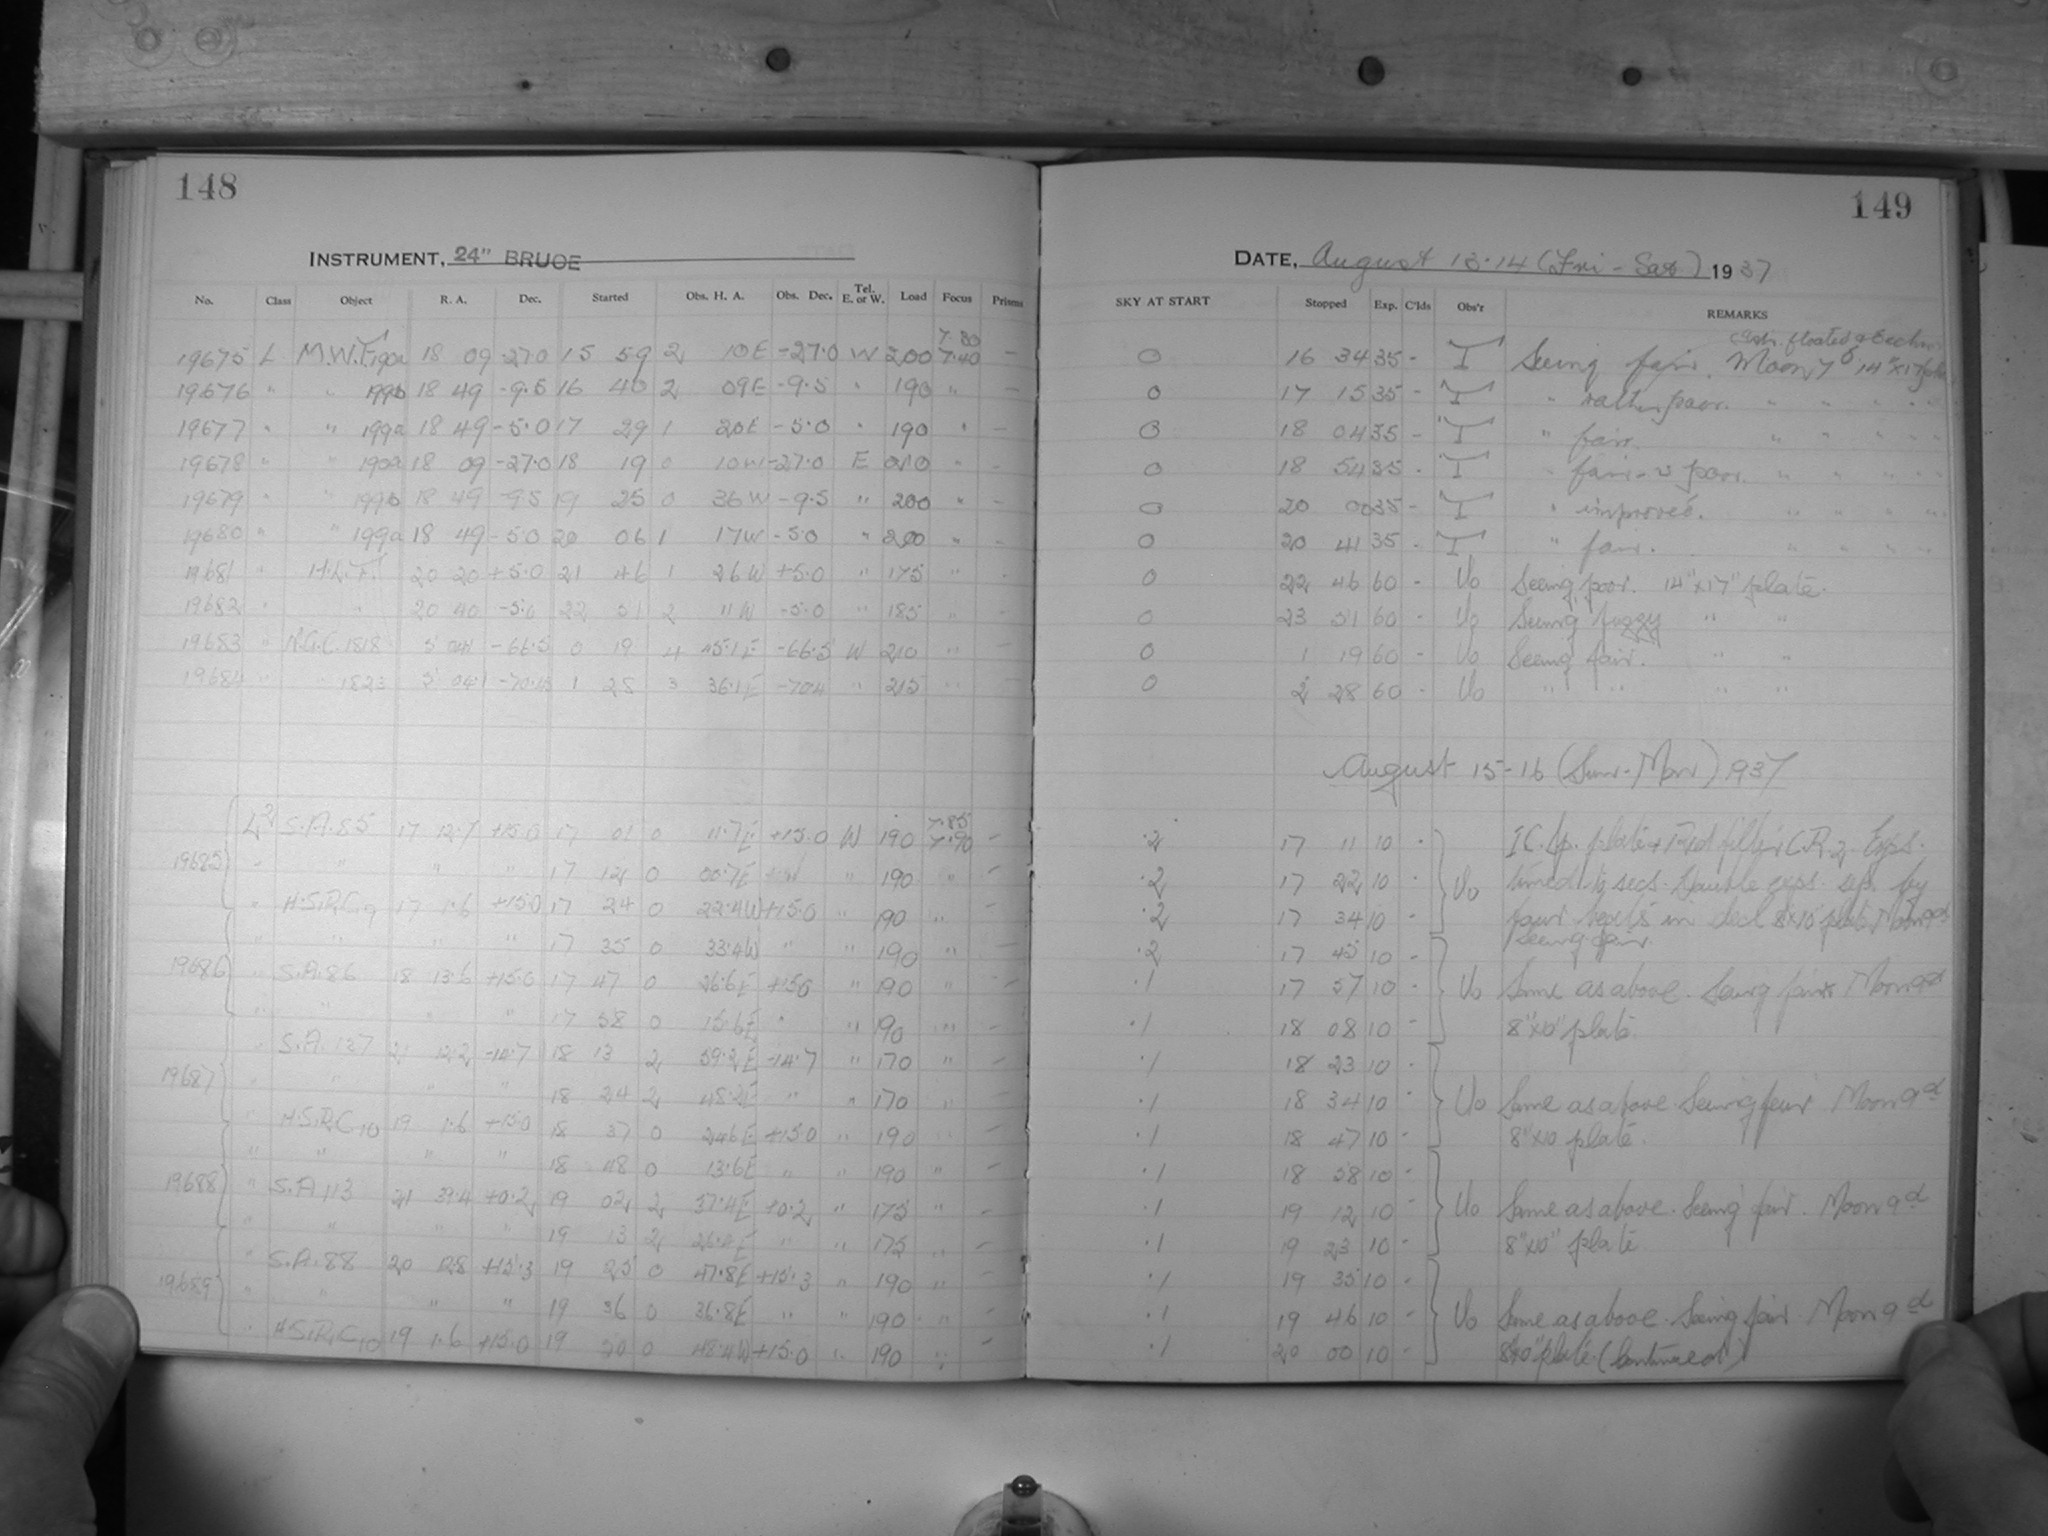 148
INSTRUMENT, 24" BRUCE
No. Class Object R. A. Dec. Started Obs. H. A. Obs. Dec. Tel. E. or W. Load Focus Prisms
7.80
19675 L M.W.F. 190a 18 09 -27.0 15 59 2 10E -27.0 W 200 7.40 -
19676 " " 199b 18 49 -9.5 16 40 2 09E -9.5 " 190 " -
19677 " " 199a 18 49 -5.0 17 29 1 20E -5.0 " 190 " -
19678 " " 190a 18 09 -27.0 18 19 0 10W -27.0 E 210 " -
19679 " " 199b 18 49 -9.5 19 25 0 36W -9.5 " 200 " -
19680 " " 199a 18 49 -5.0 20 06 1 17W -5.0 " 200 " -
19681 " H.L.F. 20 20 +5.0 21 46 1 26W +5.0 " 175 " -
19682 " " 20 40 -5.0 22 51 2 11W -5.0 " 185 "
19683 " N.G.C. 1818 5 04.1 -66.5 0 19 4 45.1E -66.5 W 210 "
19684 " " 1823 5 04.1 1 28 3 36.1E -70.4 " 215 "
7.85
L2 S.A. 85 17 12.7 +15.0 17 01 0 11.7E +15.0 W 190 7.90 -
19685 " " " " 17 12 0 00.7E " " 190 " -
" H.S.R.C 9 17 1.6 +15.0 17 24 0 22.4W +15.0 " 190 " -
" " " " 17 35 0 33.4W " " 190 " -
19686 " S.A. 86 18 13.6 +15.0 17 47 0 26.6E +15.0 " 190 " -
" " " " 17 58 0 15.6E " " 190 " -
" S.A. 137 21 12.2 -14.7 18 13 2 59.2E -14.7 " 170 " -
19687 " " " " 18 24 2 48.2E " " 170 " -
" H.S.R.C 10 19 1.6 +15.0 18 37 0 24.6E +15.0 " 190 " -
" " " " 18 48 0 13.6E " " 190 " -
19688 " S.A. 113 21 39.4 +0.2 19 02 2 37.4E +0.2 " 175 " -
" " " " 19 13 2 26.4E " " 175 " -
" S.A. 88 20 12.8 +15.3 19 25 0 47.8E +15.3 " 190 " -
19689 " " " " 19 36 0 36.8E " " 190 " -
" H.S.R.C 10 19 1.6 +15.0 19 50 0 48.4W +15.0 " 190 " -
149
DATE, August 13.14 (Fri - Sat) 1937
SKY AT START Stopped Exp. C'lds Obs'r REMARKS
0 16 34 35 - T Seeing fair. Moon 7d 14"x17"
0 17 15 35 - T " rather poor. " " " "
0 18 04 35 - T " fair. " " " "
0 18 54 35 - T " fair-poor. " " " "
0 20 00 35 - T " improved. " " " "
0 20 41 35 - T " fair. " " " "
0 22 46 60 - Uo Seeing poor. 14"x17" plate.
0 23 51 60 - Uo Seeing fuzzy " "
0 1 19 60 - Uo Seeing fair. " "
0 2 28 60 - Uo " " " "
August 15-16 (Sun-Mon) 1937
.2 17 11 10 - I C. Sp. plate + red filter C.R.2. Exps.
.2 17 22 10 - Uo timed secs. Double exps. sep. by
.2 17 34 10 - four in decl 8"x10" plate Moon 9d
seeing fair.
.2 17 45 10 -
.1 17 57 10 - Uo Same as above. Seeing fair Moon 9d
.1 18 08 10 - 8"x10" plate
.1 18 23 10 -
.1 18 34 10 - Uo Same as above. Seeing fair Moon 9d
.1 18 47 10 - 8"x10 plate.
.1 18 58 10 -
.1 19 12 10 - Uo Same as above. Seeing fair. Moon 9d
.1 19 23 10 - 8"x10" plate
.1 19 35 10 -
.1 19 46 10 - Uo Same as above. Seeing fair Moon 9d
.1 20 00 10 - 8"x10" plate (Continued)